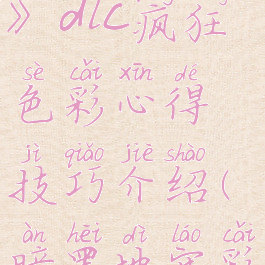 》dlc疯狂
sè cǎi xīn dé
色彩心得
jì qiǎo jiè shào
技巧介绍(
àn hēi dì láo cǎi
暗黑地牢彩